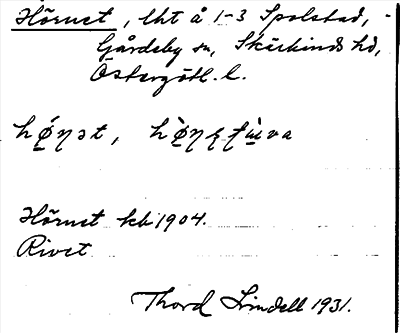 Hörnet, lht å 1-3 Spolstad,
Gårdeby sn, Skärkinds hd,
Östergötl. l.
Hörnet kb 1904.
Rivet
Thord Lindell 1931.